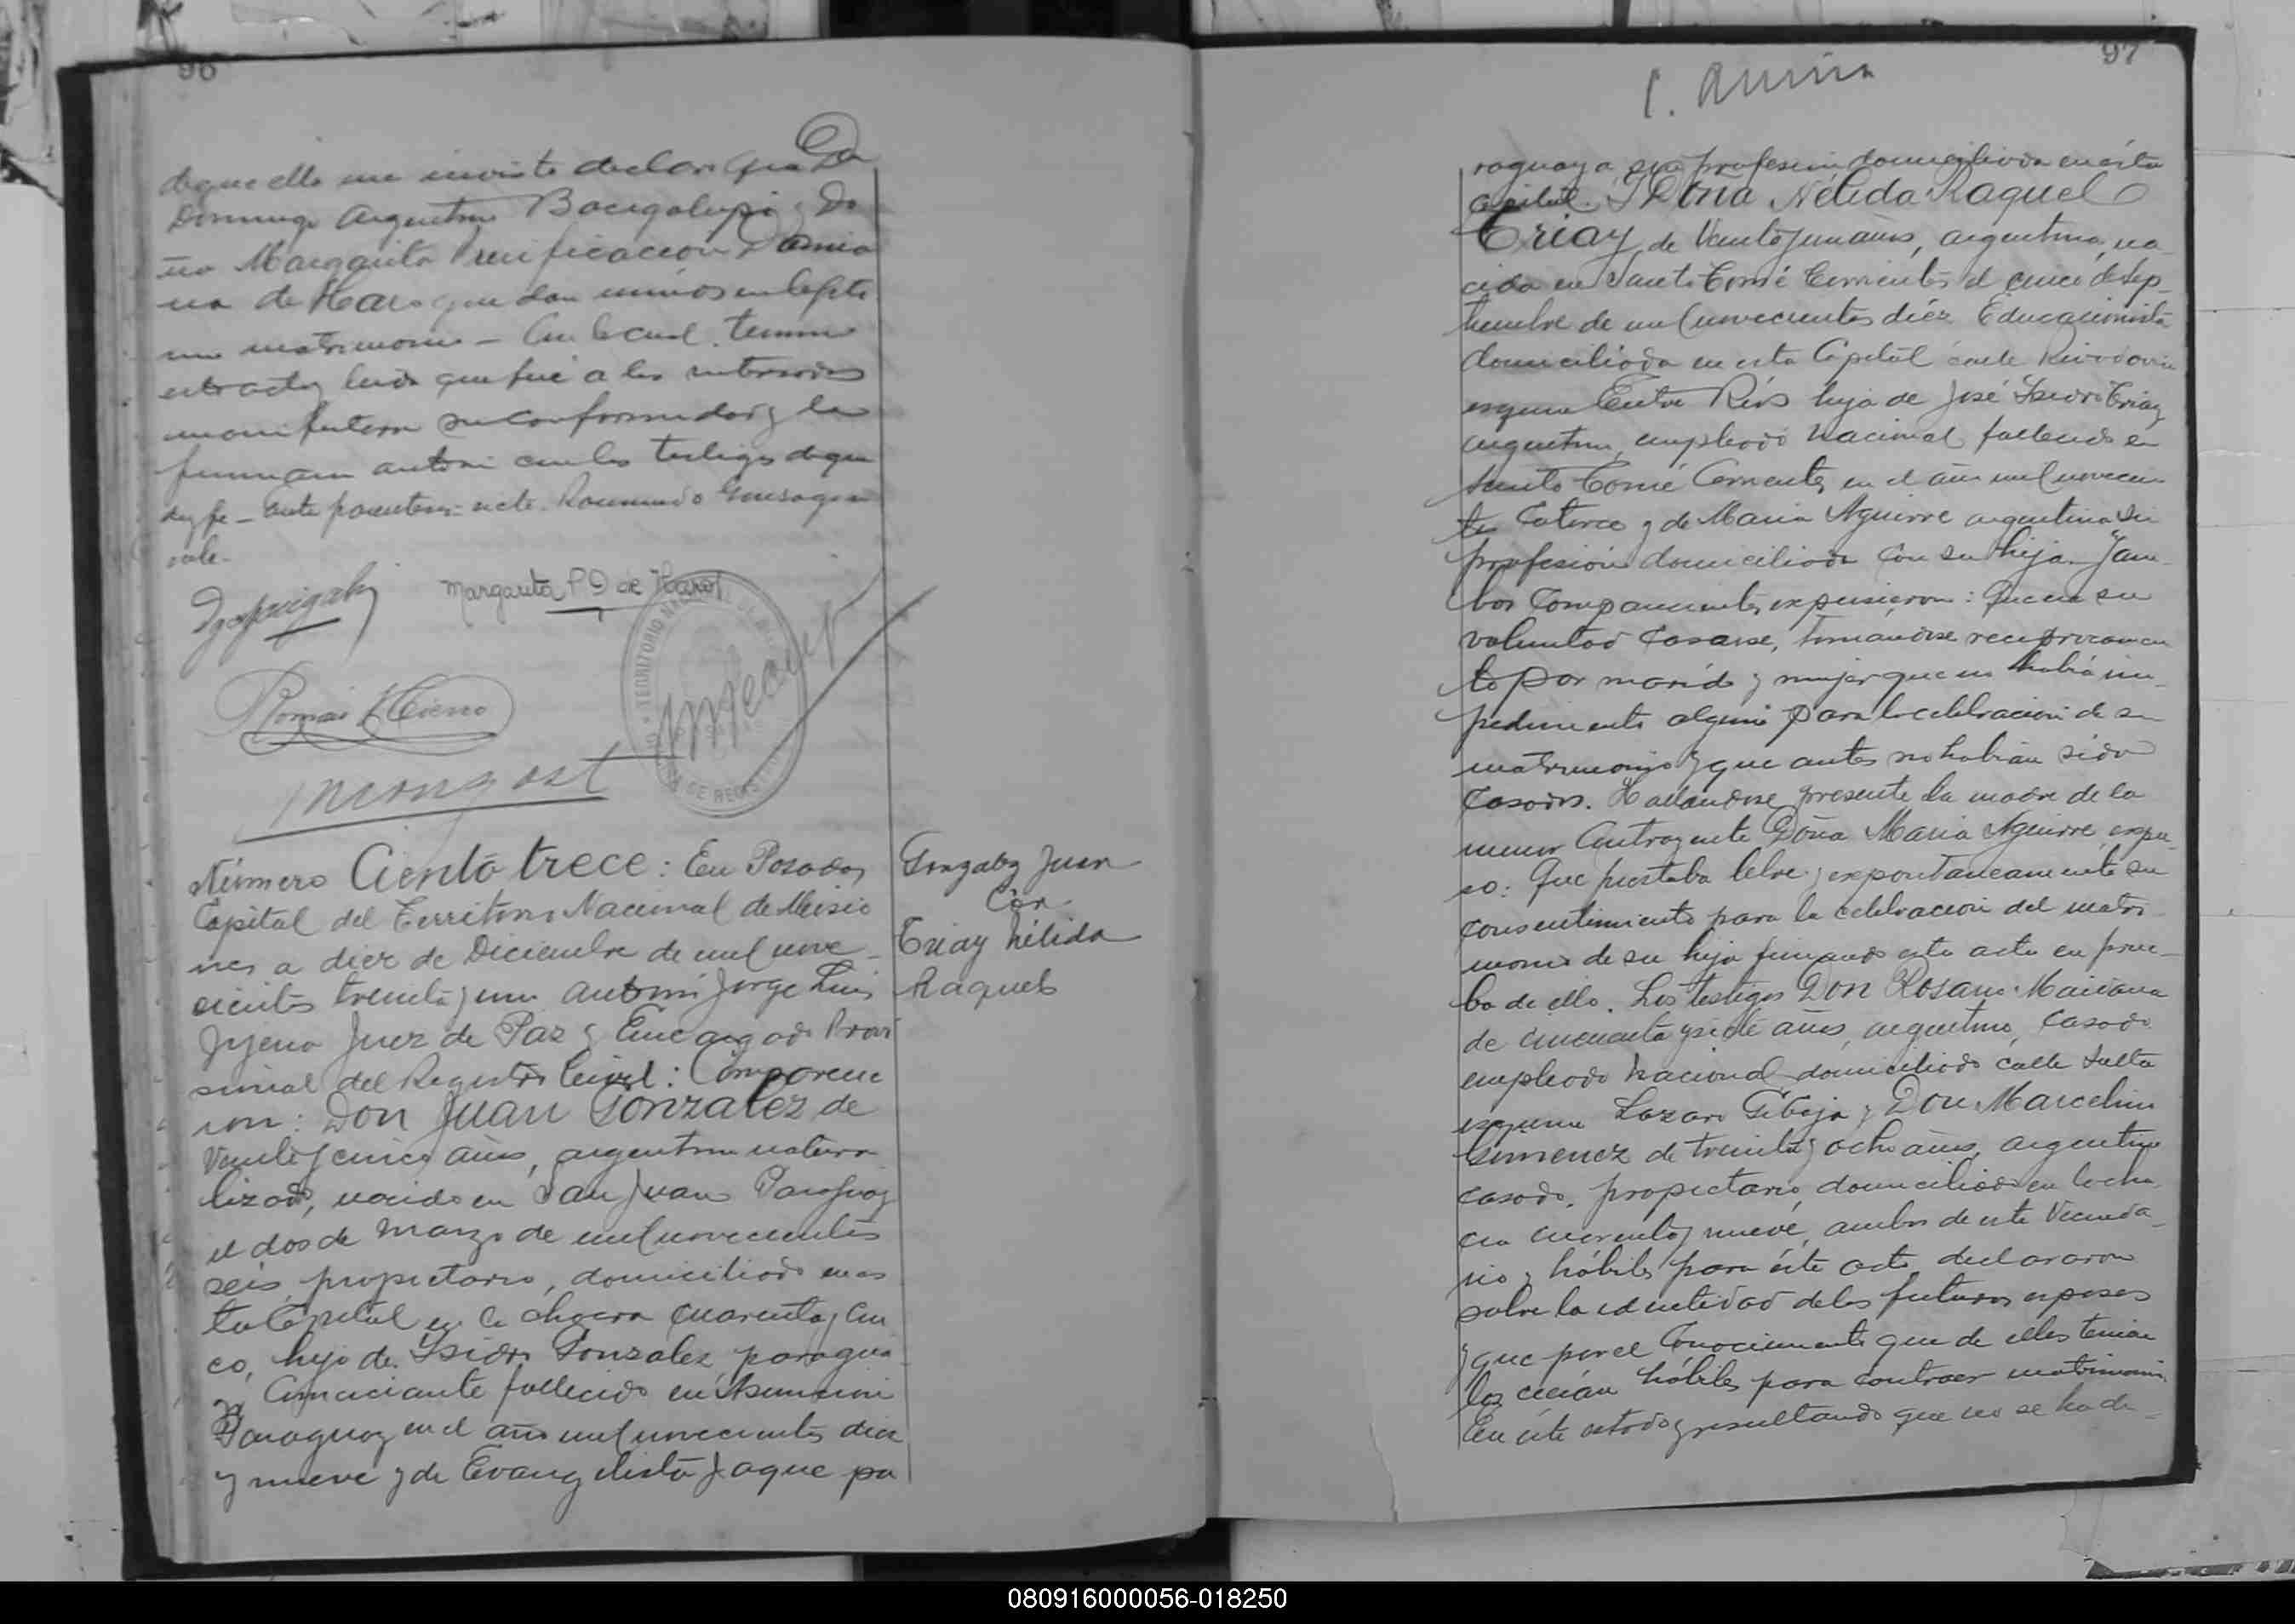 96
de que ella me inviste declaro que Dn
Domingo Argentino Bacigalupi y Do
ña Margarita Purificacion Damia
na de Haro quedan unidos en legíti
mo matrimonio - Con lo cual termino
este acto y leida que fué a los interesados
manifestaron su conformidad y la
firmaron ante mi con los testigos de que
doy fe - Entre parentesis = siete. Raimundo
vale.
Margarita P D de Haro
Mongost
Número Ciento trece: En Posadas
Capital del Territorio Nacional de Misio
nes a diez de Diciembre de mil nove
cientos treinta y uno ante mi Jorge Luis
Juez de Paz y Encargado Provi
sional del Registro Civil: Comparecie
ron: Don Juan Gonzalez de
Veinte y cinco años, argentino natura
lizado, nacido en San Juan Paraguay
el dos de Marzo de mil novecientos
seis, propietario, domiciliado en es
ta Capital en la chacra cuarenta y cin
co, hijo de Isidro Gonzalez, paragua
yo, Comerciante fallecido en Asuncion
Paraguay en el año mil novecientos diez
y nueve y de Evangelista Jaque pa
Gonzalez Juan
Con
Triay Nélida
Raquel
97
raguaya, sin profesión, domiciliada en ésta
Capital. Y Doña Nélida Raquel
Triay, de Veinte y un años, argentina, na-
cida en Santo Tomé Corrientes el cinco de Sep-
tiembre de mil novecientos diéz, Educacionista
domiciliada en esta Capital calle Rivadavia
esquina Entre Ríos hija de José Isidro Triay
argentino, empleado Nacional, fallecido en
Santo Tomé Corrientes, en el año mil novecien
tos Catorce y de Maria Aguirre argentina sin
profesión domiciliada con su hija. Y am-
bos Comparecientes expusieron: Que era su
voluntad Casarse, tomándose recíprocamen
te por marido y mujer que no habia im-
pedimento alguno para la celebracion de su
matrimonio y que antes no habian sido
Casados. Hallandose presente la madre de la
menor Contrayente Doña Maria Aguirre, expu-
so: Que prestaba libre y expontaneamente su
consentimiento para la celebracion del matri
monio de su hija firmando esta acta en prue-
ba de ello. Los testigos Don Rosario Maidana
de cincuenta y siete años, argentino, Casado
empleado Nacional, domiciliado calle Salta
esquina Lazaro Gibaja y Don Marcelino
Gimenez de treinta y ocho años, argentino
casado, propietario, domiciliado en la cha
cra cuarenta y nueve, ambos de este Vecinda-
rio y hábiles para éste acto, declararon
sobre la identidad de los futuros esposos
y que por el Conocimiento que de ellos tenian
los creian hábiles para contraer matrimonio.
En este estado y resultando que no se ha de-
080916000056-018250